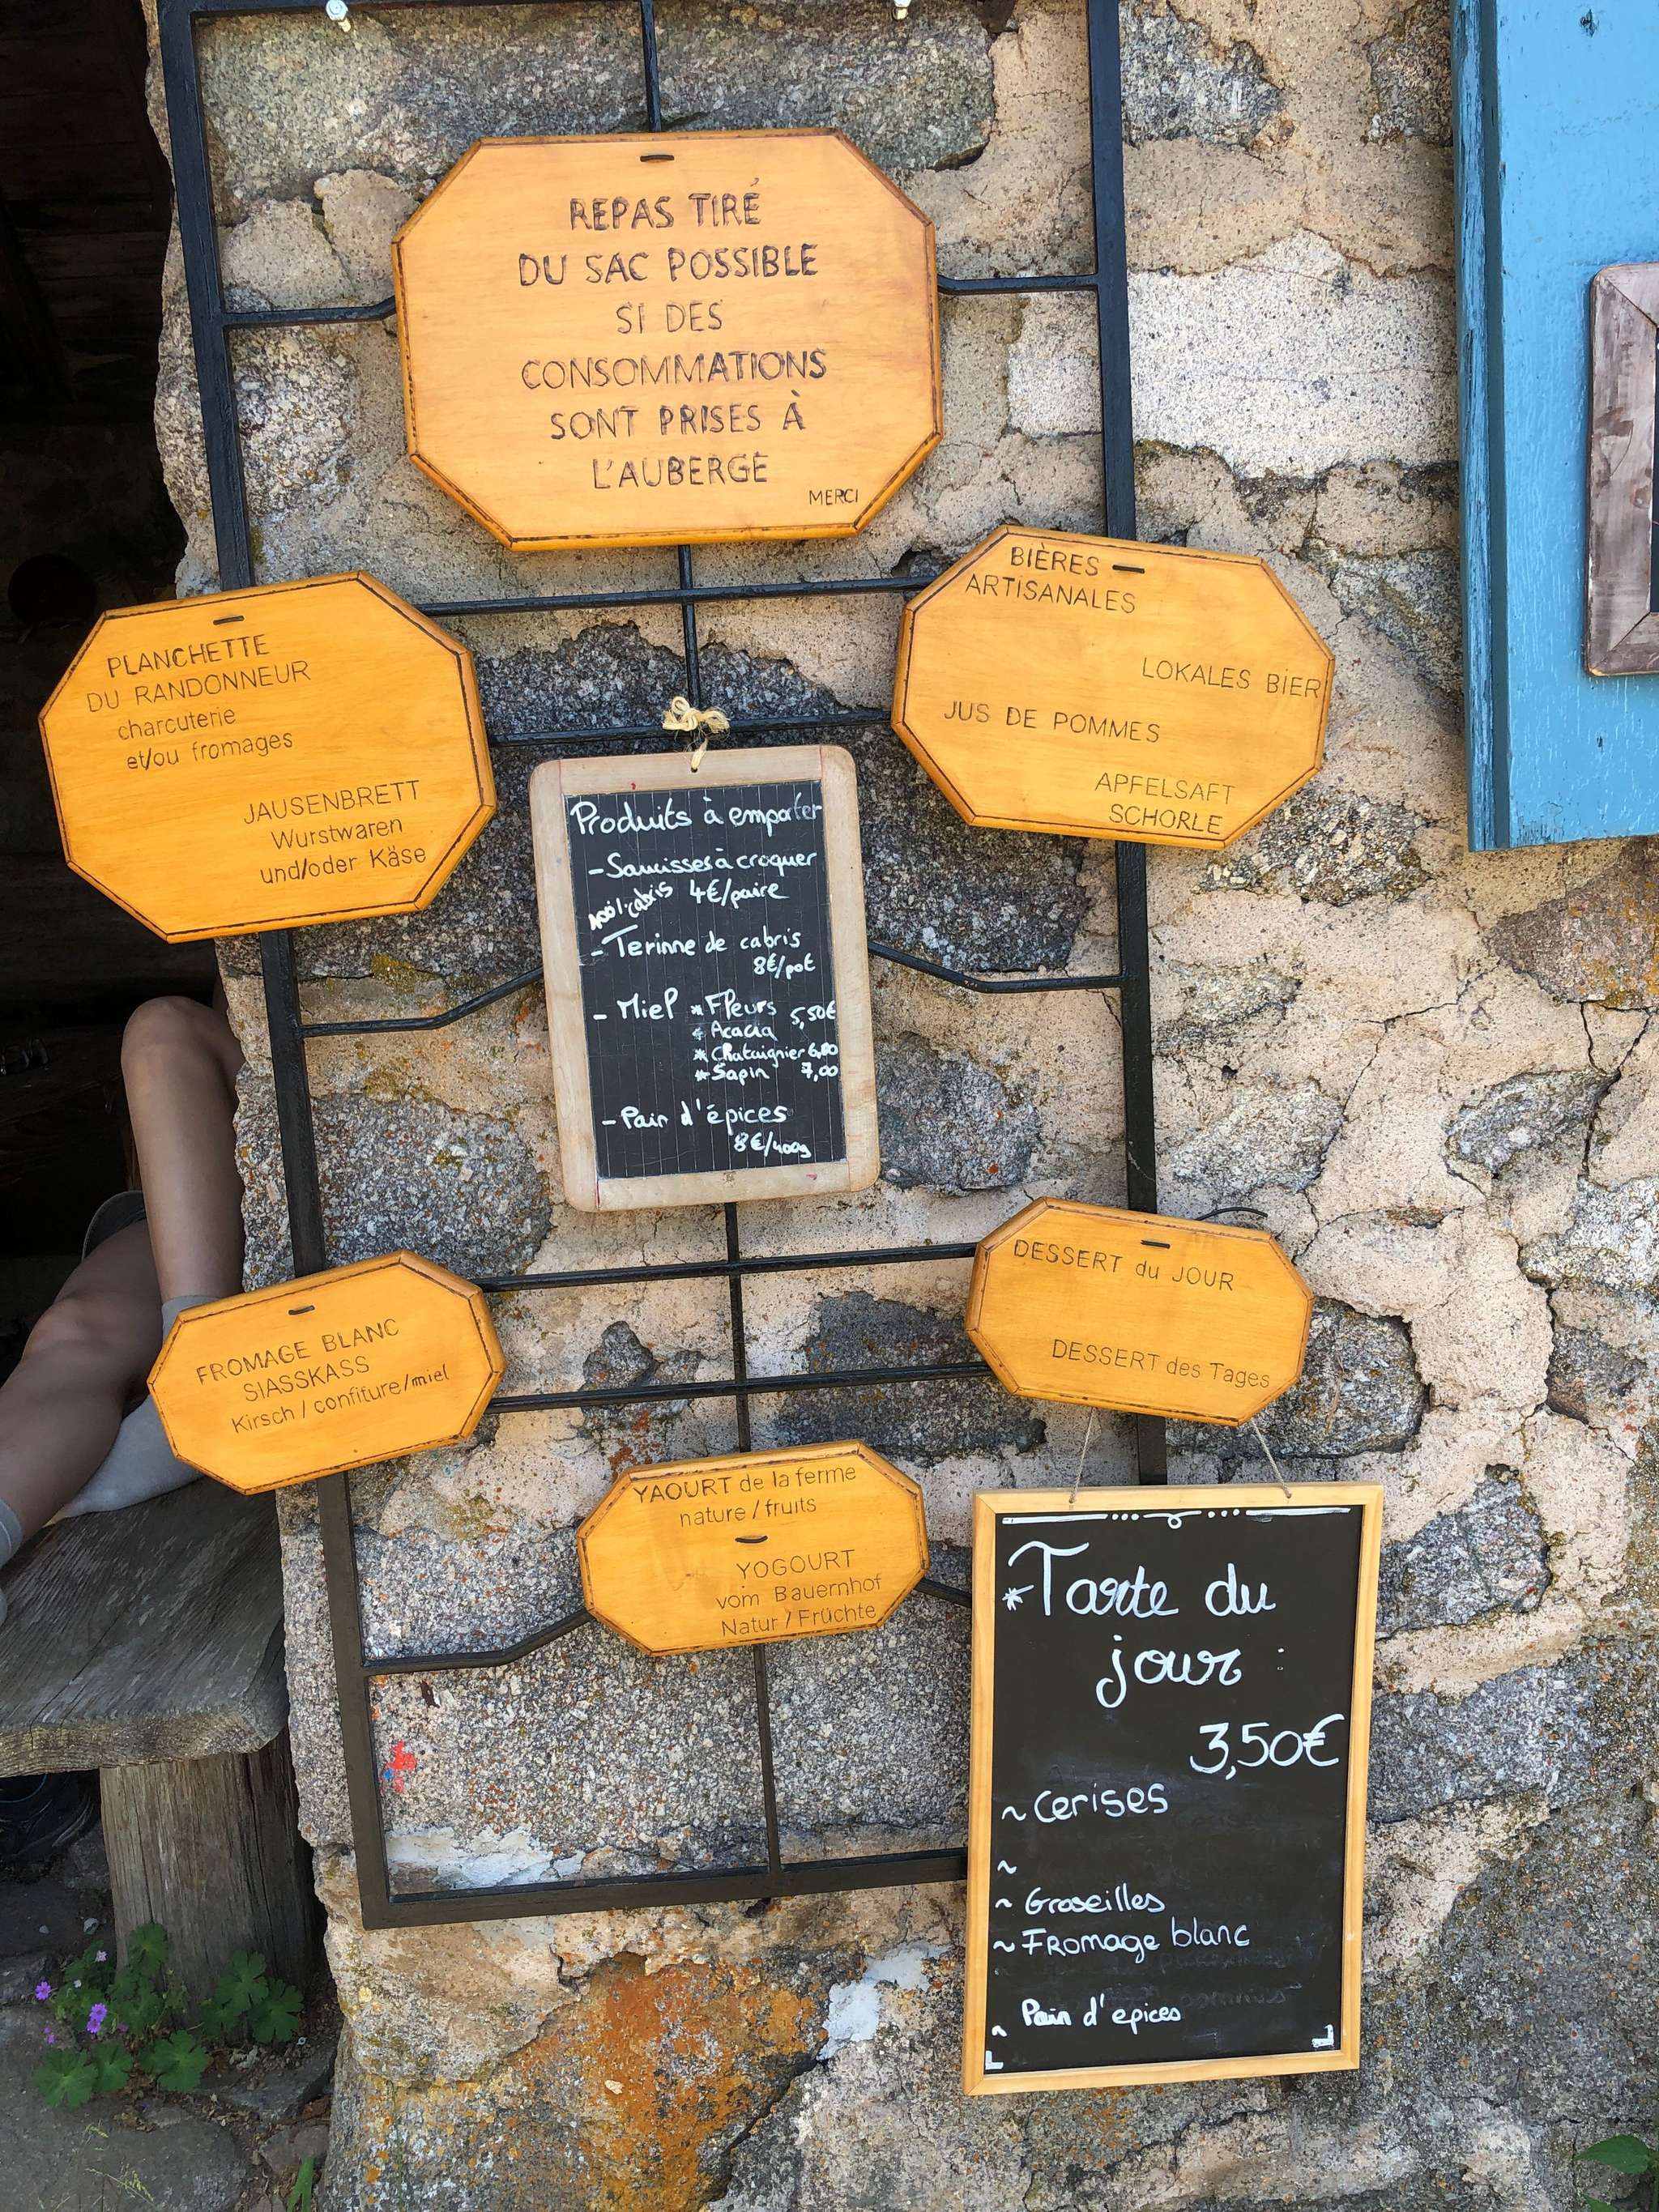 REPAS TIRÉ
DU SAC POSSIBLE
SI DES
CONSOMMATIONS
SONT PRISES À
L'AUBERGE
MERCI
PLANCHETTE
DU RANDONNEUR
charcuterie
et/ou fromages
JAUSENBRETT
Wurstwaren
und/oder Käse
BIÈRES
ARTISANALES
LOKALES BIER
JUS DE POMMES
APFELSAFT
SCHORLE
Produits à emporter
- Saucisses à croquer
100% cabris 4€/paire
- Terinne de cabris
8€/pot
- Miel * Fleurs 5,50€
* Acacia
* Chataignier 6,80
* Sapin 7,00
- Pain d'épices
8€/400g
FROMAGE BLANC
SIASSKASS
Kirsch / confiture/miel
DESSERT du JOUR
DESSERT des Tages
YAOURT de la ferme
nature / fruits
YOGOURT
vom Bauernhof
Natur / Früchte
* Tarte du
jour :
3,50€
~ Cerises
~
~ Groseilles
~ Fromage blanc
~ Pain d'epices